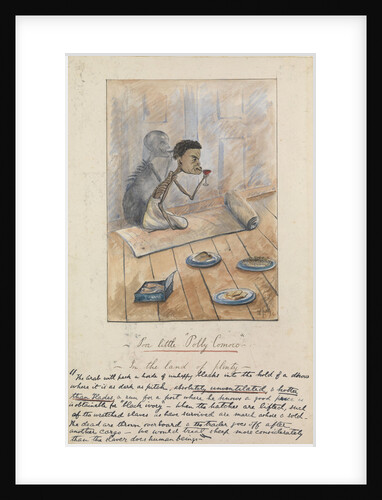 "Our little "Polly Comoro"
- In the land of plenty -
"The Arab will pack a hundred of unhappy blacks into the hold of a dhow
where it is as dark as pitch, absolutely unventilated & hotter
than Hades & run for a port where he knows a good price is
obtainable for "black ivory" - When the hatches are lifted, such
of the wretched slaves as have survived are marched ashore & sold.
The dead are thrown overboard & the trader goes off after
another cargo - We would treat sheep more considerately
than the slaver does human beings"